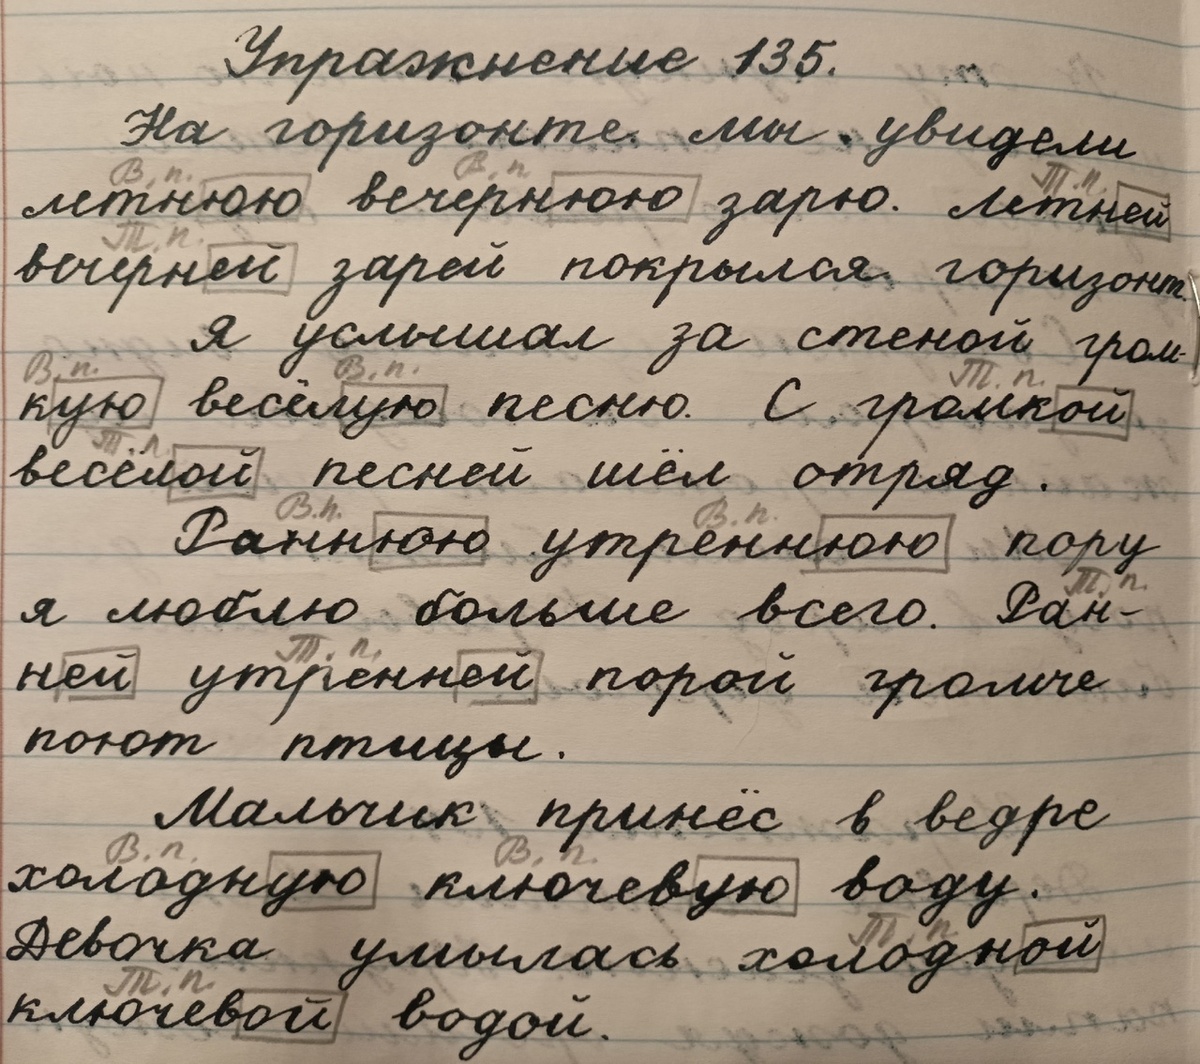 Упражнение 135.
На горизонте мы увидели
В.п. В.п. Т.п.
летнюю вечернюю зарю. Летней
Т.п.
вечерней зарей покрылся горизонт.
Я услышал за стеной гром-
В.п. В.п. Т.п.
кую весёлую песню. С громкой
Т.п.
весёлой песней шёл отряд.
В.п. В.п.
Раннюю утреннюю пору
Т.п.
я люблю больше всего. Ран-
Т.п.
ней утренней порой громче
поют птицы.
Мальчик принёс в ведре
В.п. В.п.
холодную ключевую воду.
Т.п.
Девочка умылась холодной
Т.п.
ключевой водой.